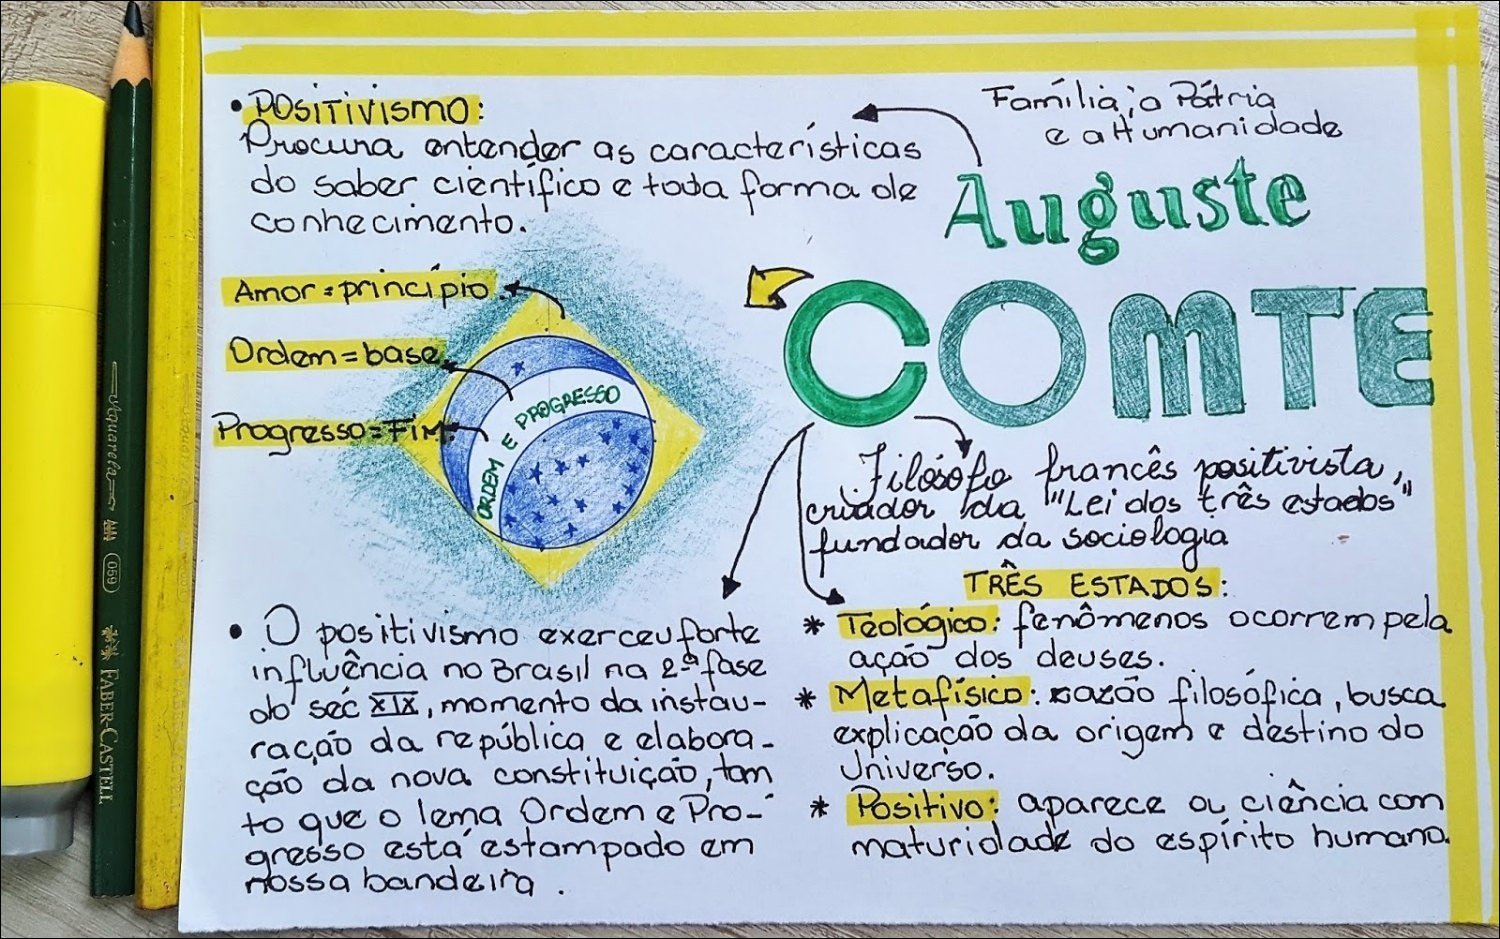 • POSITIVISMO:
Procura entender as características
do saber científico e toda forma de
conhecimento.
Família, a Pátria
e a Humanidade
Auguste
COMTE
Amor = princípio.
Ordem = base.
Progresso = FIM.
ORDEM E PROGRESSO
Filósofo francês positivista,
criador da "Lei dos três estados"
fundador da sociologia
TRÊS ESTADOS:
* Teológico: fenômenos ocorrem pela
ação dos deuses.
* Metafísico: razão filosófica, busca
explicação da origem e destino do
Universo.
* Positivo: aparece a ciência com
maturidade do espírito humano.
• O positivismo exerceu forte
influência no Brasil na 2ª fase
do séc XIX, momento da instau-
ração da república e elabora-
ção da nova constituição, tan
to que o lema Ordem e Pro-
gresso está estampado em
nossa bandeira.
Aquarela
059
FABER-CASTELL